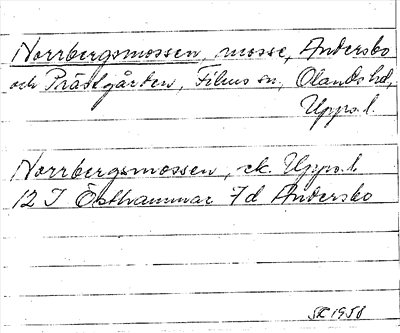 Norrbergsmossen, mosse, Andersbo
och Prästgården, Films sn, Olands hd,
Upps.l.
Norrbergsmossen, ek. Upps.l.
12 I Östhammar 7d Andersbo
SK 1958